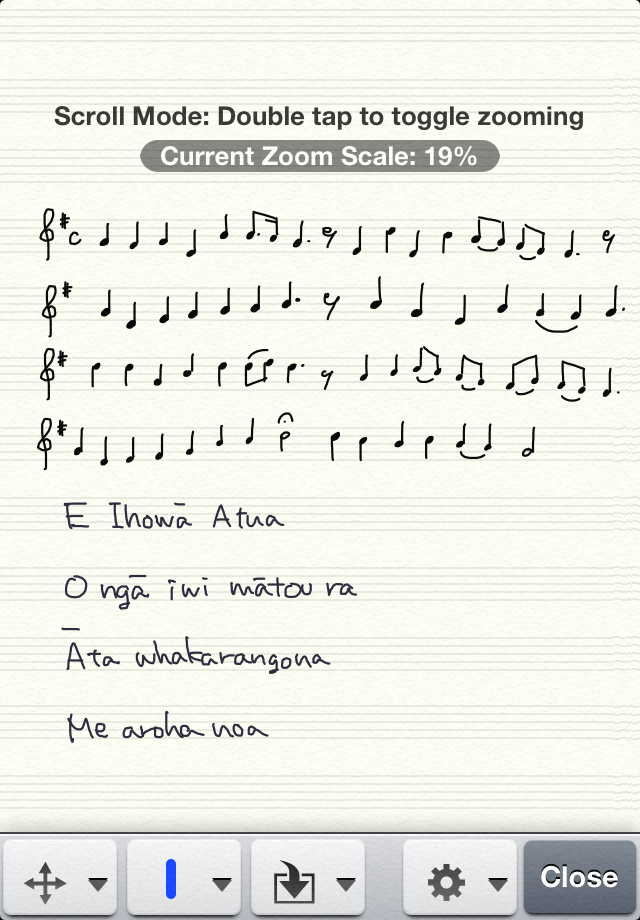 Scroll Mode: Double tap to toggle zooming
Current Zoom Scale: 19%
E Ihowā Atua
O ngā iwi mātou ra
Āta whakarangona
Me aroha noa
Close